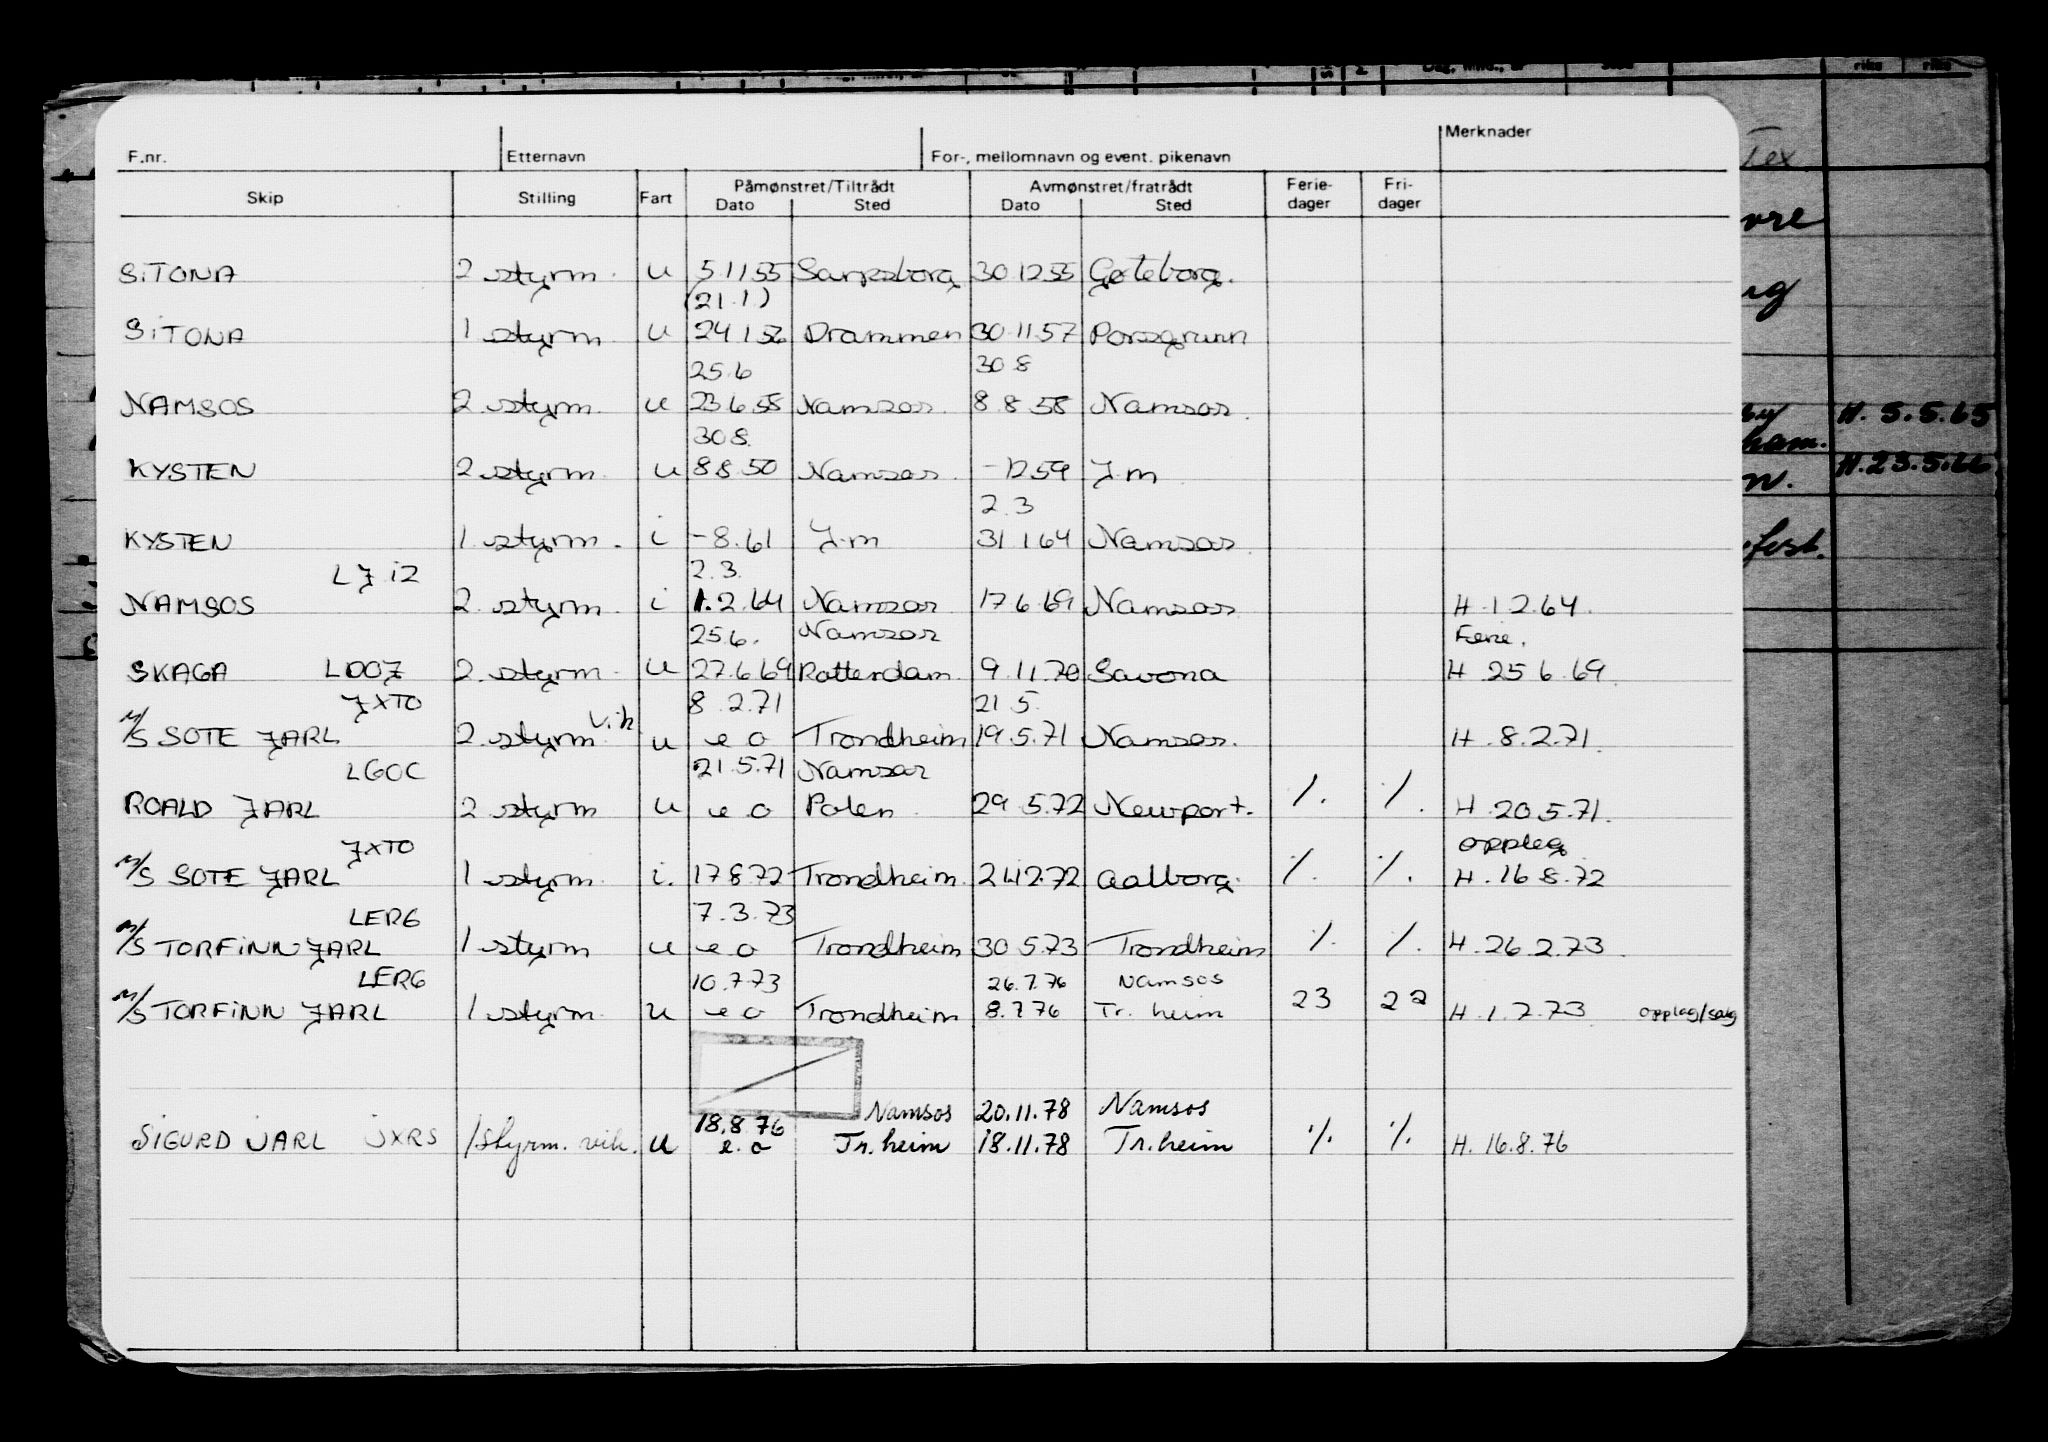 F.nr. Etternavn For-, mellomnavn og event. pikenavn Merknader
Skip Stilling Fart Påmønstret/Tiltrådt Avmønstret/fratrådt Ferie- Fri-
Dato Sted Dato Sted dager dager
SITONA 2 styrm. u 5.11 55 Sarpsborg 30 12 55 Gøteborg.
(21.1)
SITONA 1 styrm u 24 1 56 Drammen 30.11.57 Porsgrunn
25.6 30 8
NAMSOS 2 styrm. u 23 6 58 Namsos. 8 8 58 Namsos.
30 8.
KYSTEN 2 styrm. u 8 8 50 Namsos. - 12 59 J.m
2.3
KYSTEN 1 styrm. i - 8.61 J.m 31 1 64 Namsos
LJIZ 2.3.
NAMSOS 2. styrm. i 1.2.64 Namsos 17 6 69 Namsos. H.1 2.64.
25.6. Namsos Ferie.
SKAGA LDOJ 2. styrm. u 27.6.69 Rotterdam. 9.11.70 Savona H 25 6.69.
JXTO 8.2.71 21 5.
M/S SOTE JARL 2. styrm. vik u e o Trondheim 19.5.71 Namsos. H.8.2.71.
LGOC 21.5.71 Namsos
ROALD JARL 2 styrm u e o Polen 29.5.72 Newport. ٪. ٪. H.20.5.71.
JXTO opplag
M/S SOTE JARL 1 styrm. i. 17 8.72 Trondheim. 21.12.72 Aalborg. ٪. ٪. H.16 8.72
LERG 7.3.73
M/S TORFINN JARL 1 styrm u e o Trondheim 30 5.73 Trondheim ٪. ٪. H.26.2.73.
LERG 10.7.73 26.7.76 Namsos
M/S TORFINN JARL 1 styrm. u e o Trondheim 8.7.76 Tr. heim 23 22 H.1.7.73 opplag/salg
18.8.76 Namsos 20.11.78 Namsos
SIGURD JARL JXRS 1 styrm. vik. u e.o Tr.heim 18.11.78 Tr.heim ٪. ٪. H. 16.8.76
Tex
H. 5.5.65
H.23.5.66